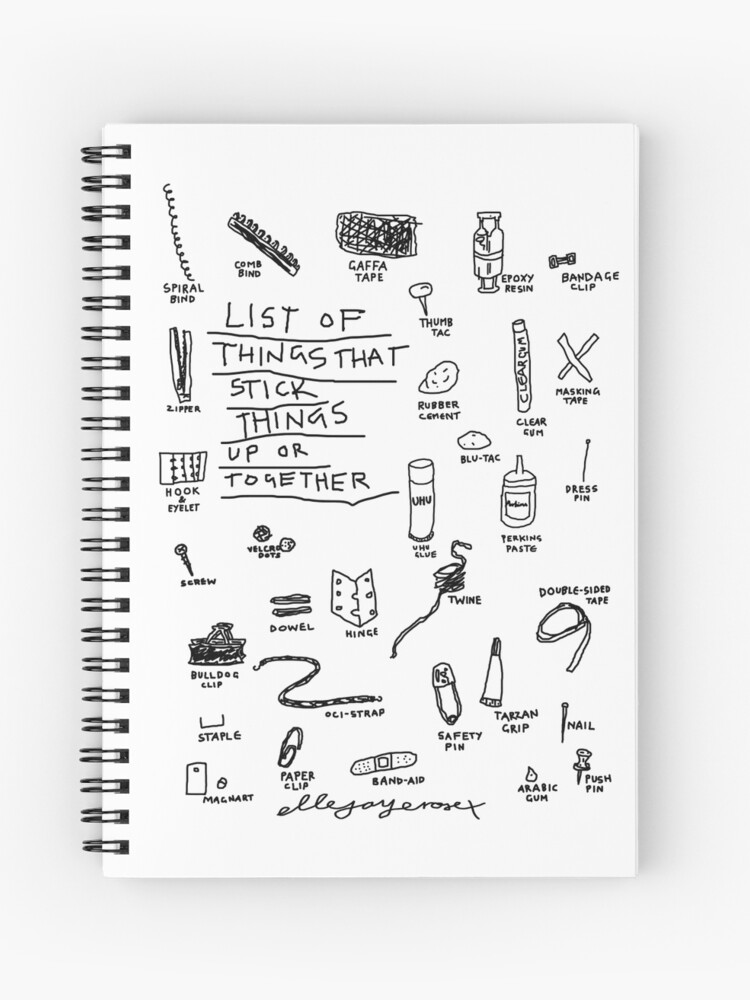 SPIRAL
BIND
COMB
BIND
GAFFA
TAPE
EPOXY
RESIN
BANDAGE
CLIP
LIST OF
THINGS THAT
STICK
THINGS
UP OR
TOGETHER
THUMB
TAC
ZIPPER
RUBBER
CEMENT
CLEAR GUM
CLEAR
GUM
MASKING
TAPE
BLU-TAC
HOOK
&
EYELET
UHU
UHU
GLUE
Perkins
PERKING
PASTE
DRESS
PIN
VELCRO
DOTS
SCREW
DOWEL
HINGE
TWINE
DOUBLE-SIDED
TAPE
BULLDOG
CLIP
OCI-STRAP
SAFETY
PIN
TARZAN
GRIP
NAIL
STAPLE
PAPER
CLIP
BAND-AID
MAGNART
ARABIC
GUM
PUSH
PIN
ellejayerosex